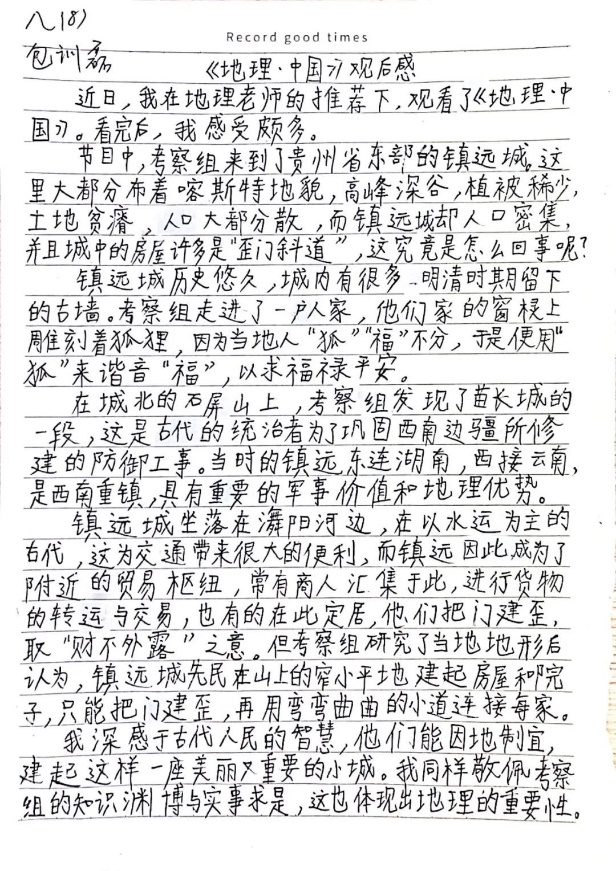 八(8)
Record good times
包训磊
《地理·中国》观后感
近日，我在地理老师的推荐下，观看了《地理·中
国》。看完后，我感受颇多。
节目中，考察组来到了贵州省东部的镇远城。这
里大都分布着喀斯特地貌，高峰深谷，植被稀少，
土地贫瘠，人口大部分散，而镇远城却人口密集，
并且城中的房屋许多是“歪门斜道”，这究竟是怎么回事呢？
镇远城历史悠久，城内有很多明清时期留下
的古墙。考察组走进了一户人家，他们家的窗棂上
雕刻着狐狸，因为当地人“狐”“福”不分，于是便用“
狐”来谐音“福”，以求福禄平安。
在城北的石屏山上，考察组发现了苗长城的
一段，这是古代的统治者为了巩固西南边疆所修
建的防御工事。当时的镇远，东连湖南，西接云南，
是西南重镇，具有重要的军事价值和地理优势。
镇远城坐落在㵲阳河边，在以水运为主的
古代，这为交通带来很大的便利，而镇远因此成为了
附近的贸易枢纽，常有商人汇集于此，进行货物
的转运与交易，也有的在此定居，他们把门建歪，
取“财不外露”之意。但考察组研究了当地地形后
认为，镇远城先民在山上的窄小平地建起房屋和院
子，只能把门建歪，再用弯弯曲曲的小道连接每家。
我深感于古代人民的智慧，他们能因地制宜，
建起这样一座美丽又重要的小城。我同样敬佩考察
组的知识渊博与实事求是，这也体现出地理的重要性。